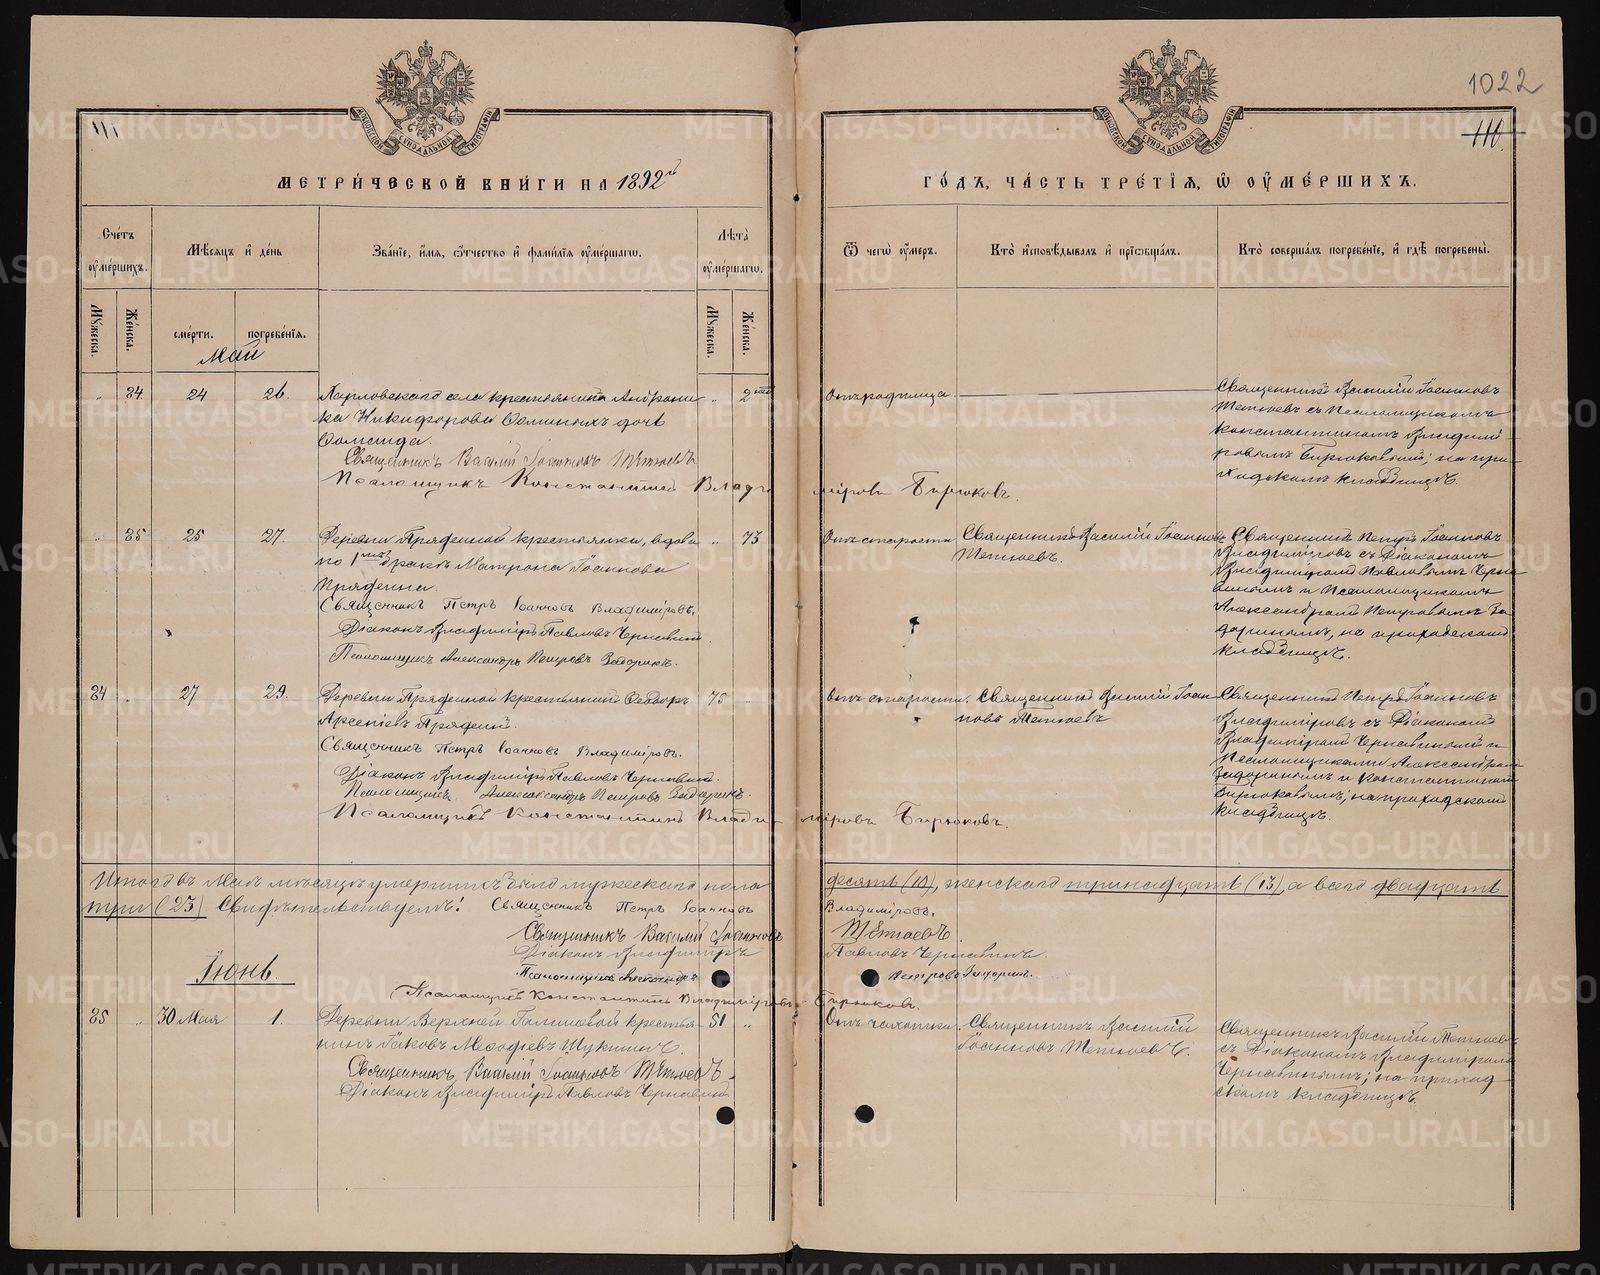 1022
111
МЕТРИ́ЧЕСКОЙ КНИ́ГИ НА 1892й
ГО́ДЪ, ЧА́СТЬ ТРЕ́ТІѦ, Ѡ҆ ОУ҆МЕ́РШИХЪ.
Сче́тъ оу҆ме́ршихъ.
Мѣ́сѧцъ и҆ де́нь
Зва́нїе, и҆́мѧ, ѻ҆́тчество и҆ фами́лїѧ оу҆ме́ршагѡ.
Лѣ́та оу҆ме́ршагѡ.
Ѿ чегѡ̀ оу҆́меръ.
Кто̀ и҆сповѣ́дывалъ и҆ прїѡбща́лъ.
Кто̀ соверша́лъ погребе́нїе, и҆ гдѣ̀ погребены̀.
Мꙋ́жеска.
Же́нска.
сме́рти.
погребе́нїѧ.
Мꙋ́жеска.
Же́нска.
Май
" 34 24 26.
крестьянина Андрони-
ка Никифорова дочь
Священникъ Василій Іоанновъ
Псаломщикъ Константинъ Владиміровъ Бирюковъ.
" 2
Священникъ Василій Іоанновъ
съ Псаломщикомъ
Константиномъ Владимі-
ровымъ Бирюковымъ; на при-
ходскомъ кладбищѣ.
" 35 25 27.
Деревни Пряденной крестьянка, вдова
по 1мъ бракѣ Матрона Іоаннова
Пряденна.
Священникъ Петръ Іоанновъ Владиміровъ.
Діаконъ Владиміръ Павловъ Чернавинъ.
Псаломщикъ Александръ Петровъ Задоринъ.
" 73
Отъ старости
Священникъ Василій Іоанновъ
Священникъ Петръ Іоанновъ
Владиміровъ съ Діакономъ
Владиміромъ Павловымъ Черна-
винымъ и Псаломщикомъ
Александромъ Петровымъ За-
доринымъ, на приходскомъ
кладбищѣ.
34 " 27 29.
Деревни Пряденной крестьянинъ Ѳеодоръ
Арсеніевъ Пряденн.
Священникъ Петръ Іоанновъ Владиміровъ.
Діаконъ Владиміръ Павловъ Чернавинъ.
Псаломщикъ Александръ Петровъ Задоринъ.
Псаломщикъ Константинъ Владиміровъ Бирюковъ.
75 "
Отъ старости.
Священникъ Василій Іоан-
новъ
Священникъ Петръ Іоанновъ
Владиміровъ съ Діакономъ
Владиміромъ Чернавинымъ и
Псаломщиками Александромъ
Задоринымъ и Константиномъ
Бирюковымъ; на приходскомъ
кладбищѣ.
Итого въ Маѣ мѣсяцѣ умершихъ было мужескаго пола десять (10), женскаго тринадцать (13), а всего двадцать
три (23) Свидѣтельствуемъ: Священникъ Петръ Іоанновъ Владиміровъ.
Священникъ Василій Іоанновъ
Діаконъ Владиміръ Павловъ Чернавинъ.
Псаломщикъ Александръ Петровъ Задоринъ.
Псаломщикъ Константинъ Владиміровъ Бирюковъ.
Іюнь
35 " 30 Мая 1.
Деревни Верхней крестья-
нинъ Іаковъ Щукинъ.
Священникъ Василій Іоанновъ
Діаконъ Владиміръ Павловъ Чернавинъ
51 "
Отъ чахотки.
Священникъ Василій
Іоанновъ
Священникъ Василій
съ Діакономъ Владиміромъ
Чернавинымъ; на приход-
скомъ кладбищѣ.
METRIKI.GASO-URAL.RU